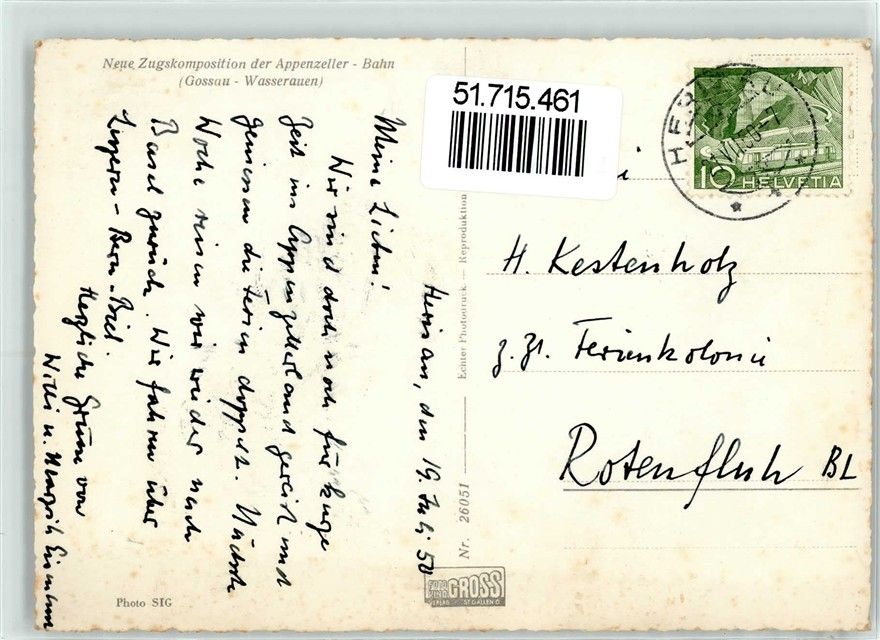 Neue Zugskomposition der Appenzeller - Bahn
(Gossau - Wasserauen)
51.715.461
HERI
VII.50-7
10 HELVETIA
Herisau, den 19. Juli 50
Meine Lieben!
Wir sind doch noch für kurze
Zeit ins Appenzellerland gereist und
geniessen die Ferien doppelt. Nächste
Woche reisen wir wieder nach
Basel zurück. Wir fahren über
Luzern - Bern - Biel.
Herzliche Grüsse von
Willi u.
H. Kestenholz
z. Zt. Ferienkolonie
Rotenfluh BL
Nr. 26051 — Echter Photodruck — Reproduktion
Photo SIG
FOTO GROSS
VERLAG ST GALLEN